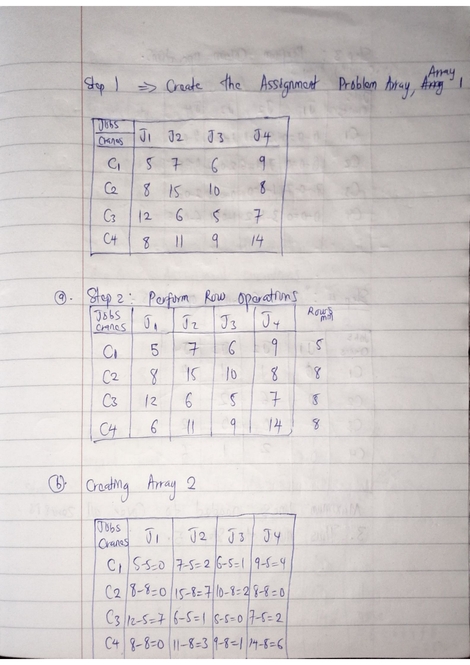 Step 1 ⇒ Create the Assignment Problem Array, Array 1
Jobs
Cranes J1 J2 J3 J4
C1 5 7 6 9
C2 8 15 10 8
C3 12 6 5 7
C4 8 11 9 14
(a). Step 2: Perform Row Operations
Jobs
Cranes J1 J2 J3 J4 Rows min
C1 5 7 6 9 5
C2 8 15 10 8 8
C3 12 6 5 7 8
C4 6 11 9 14 8
(b). Creating Array 2
Jobs
Cranes J1 J2 J3 J4
C1 5-5=0 7-5=2 6-5=1 9-5=4
C2 8-8=0 15-8=7 10-8=2 8-8=0
C3 12-5=7 6-5=1 5-5=0 7-5=2
C4 8-8=0 11-8=3 9-8=1 14-8=6